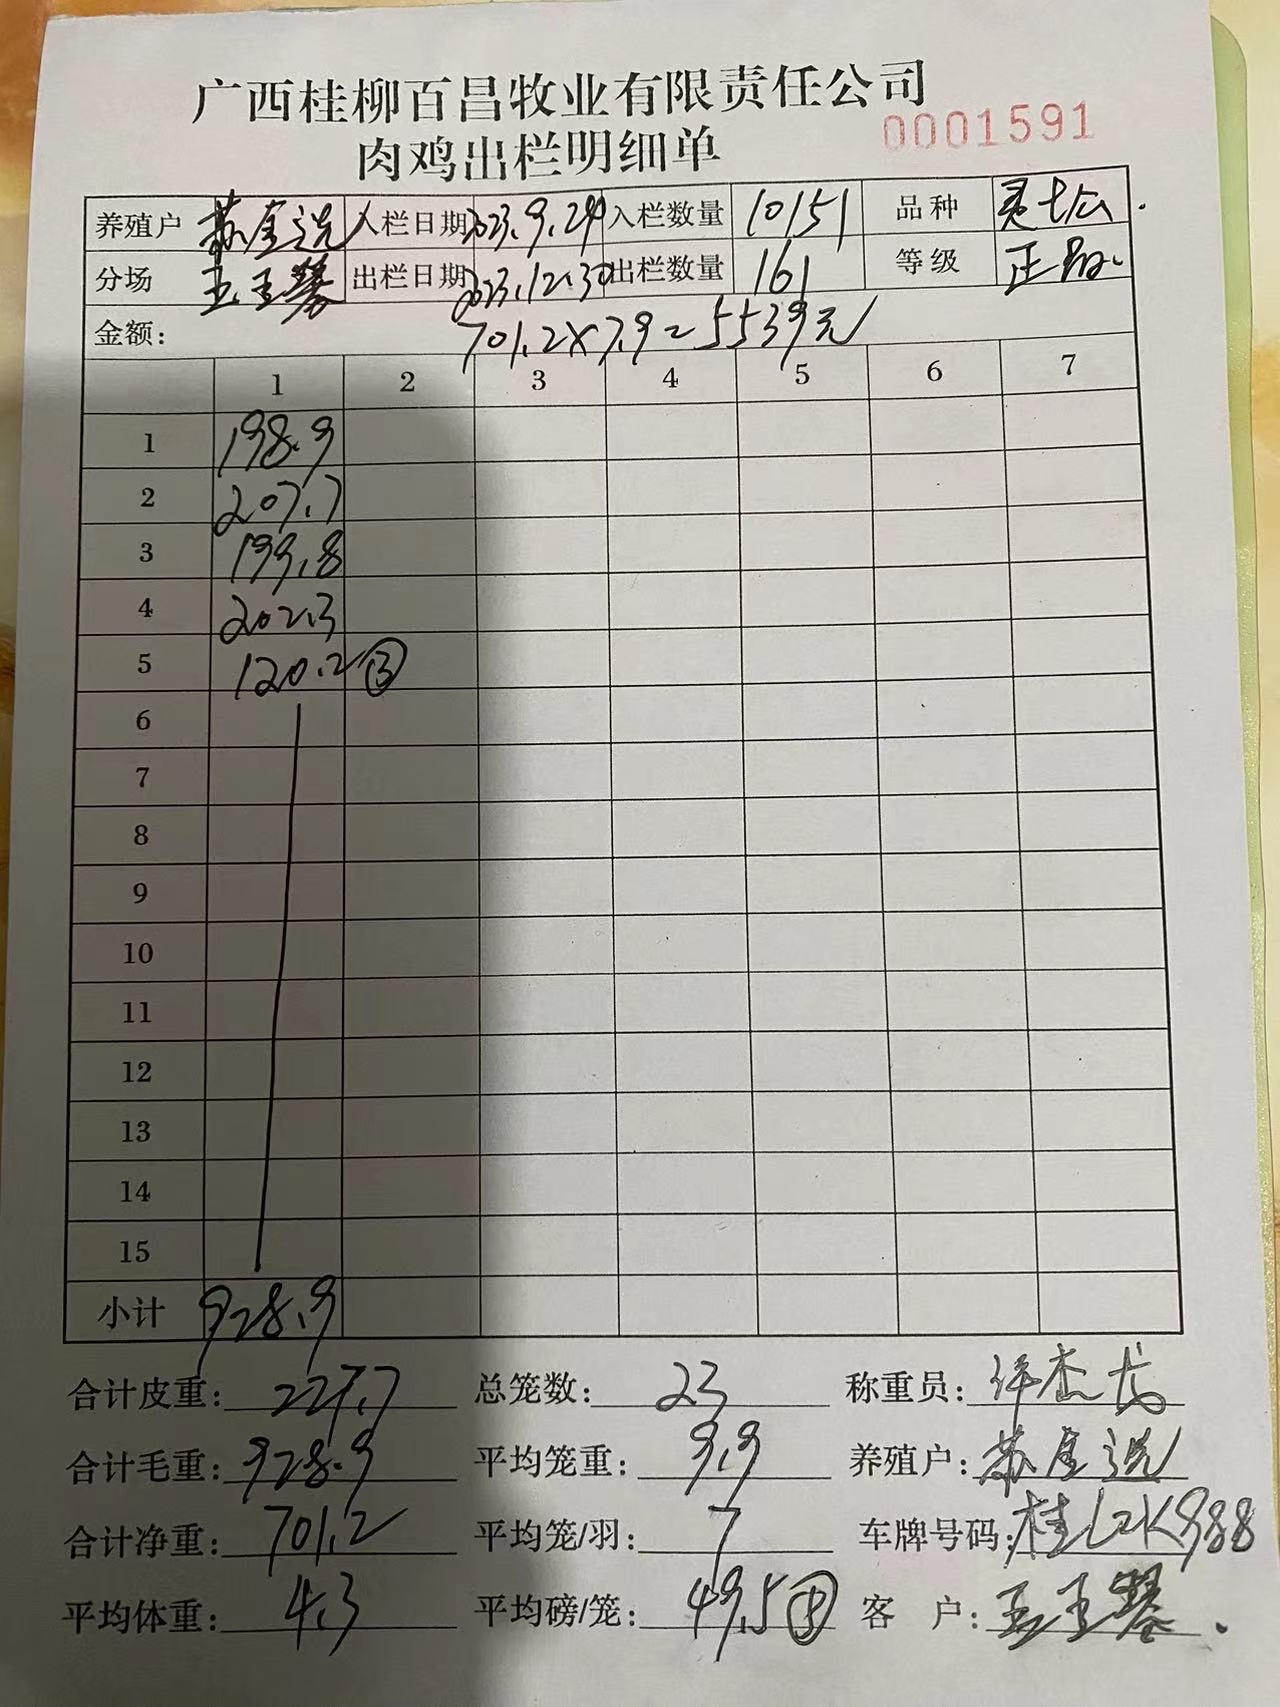 广西桂柳百昌牧业有限责任公司
肉鸡出栏明细单 0001591
养殖户 苏金选 入栏日期 2023.9.24 入栏数量 10151 品种
分场 出栏日期 2023.12.30 出栏数量 161 等级 正品.
金额: 701.2×7.9=5539元
1 2 3 4 5 6 7
1 198.9
2 207.7
3 199.8
4 202.3
5 120.2 ③
6
7
8
9
10
11
12
13
14
15
小计 928.9
合计皮重: 227.7 总笼数: 23 称重员: 杰龙
合计毛重: 928.9 平均笼重: 9.9 养殖户: 苏金选
合计净重: 701.2 平均笼/羽: 7 车牌号码: 桂L2K988
平均体重: 4.3 平均磅/笼: 49.5 客 户: